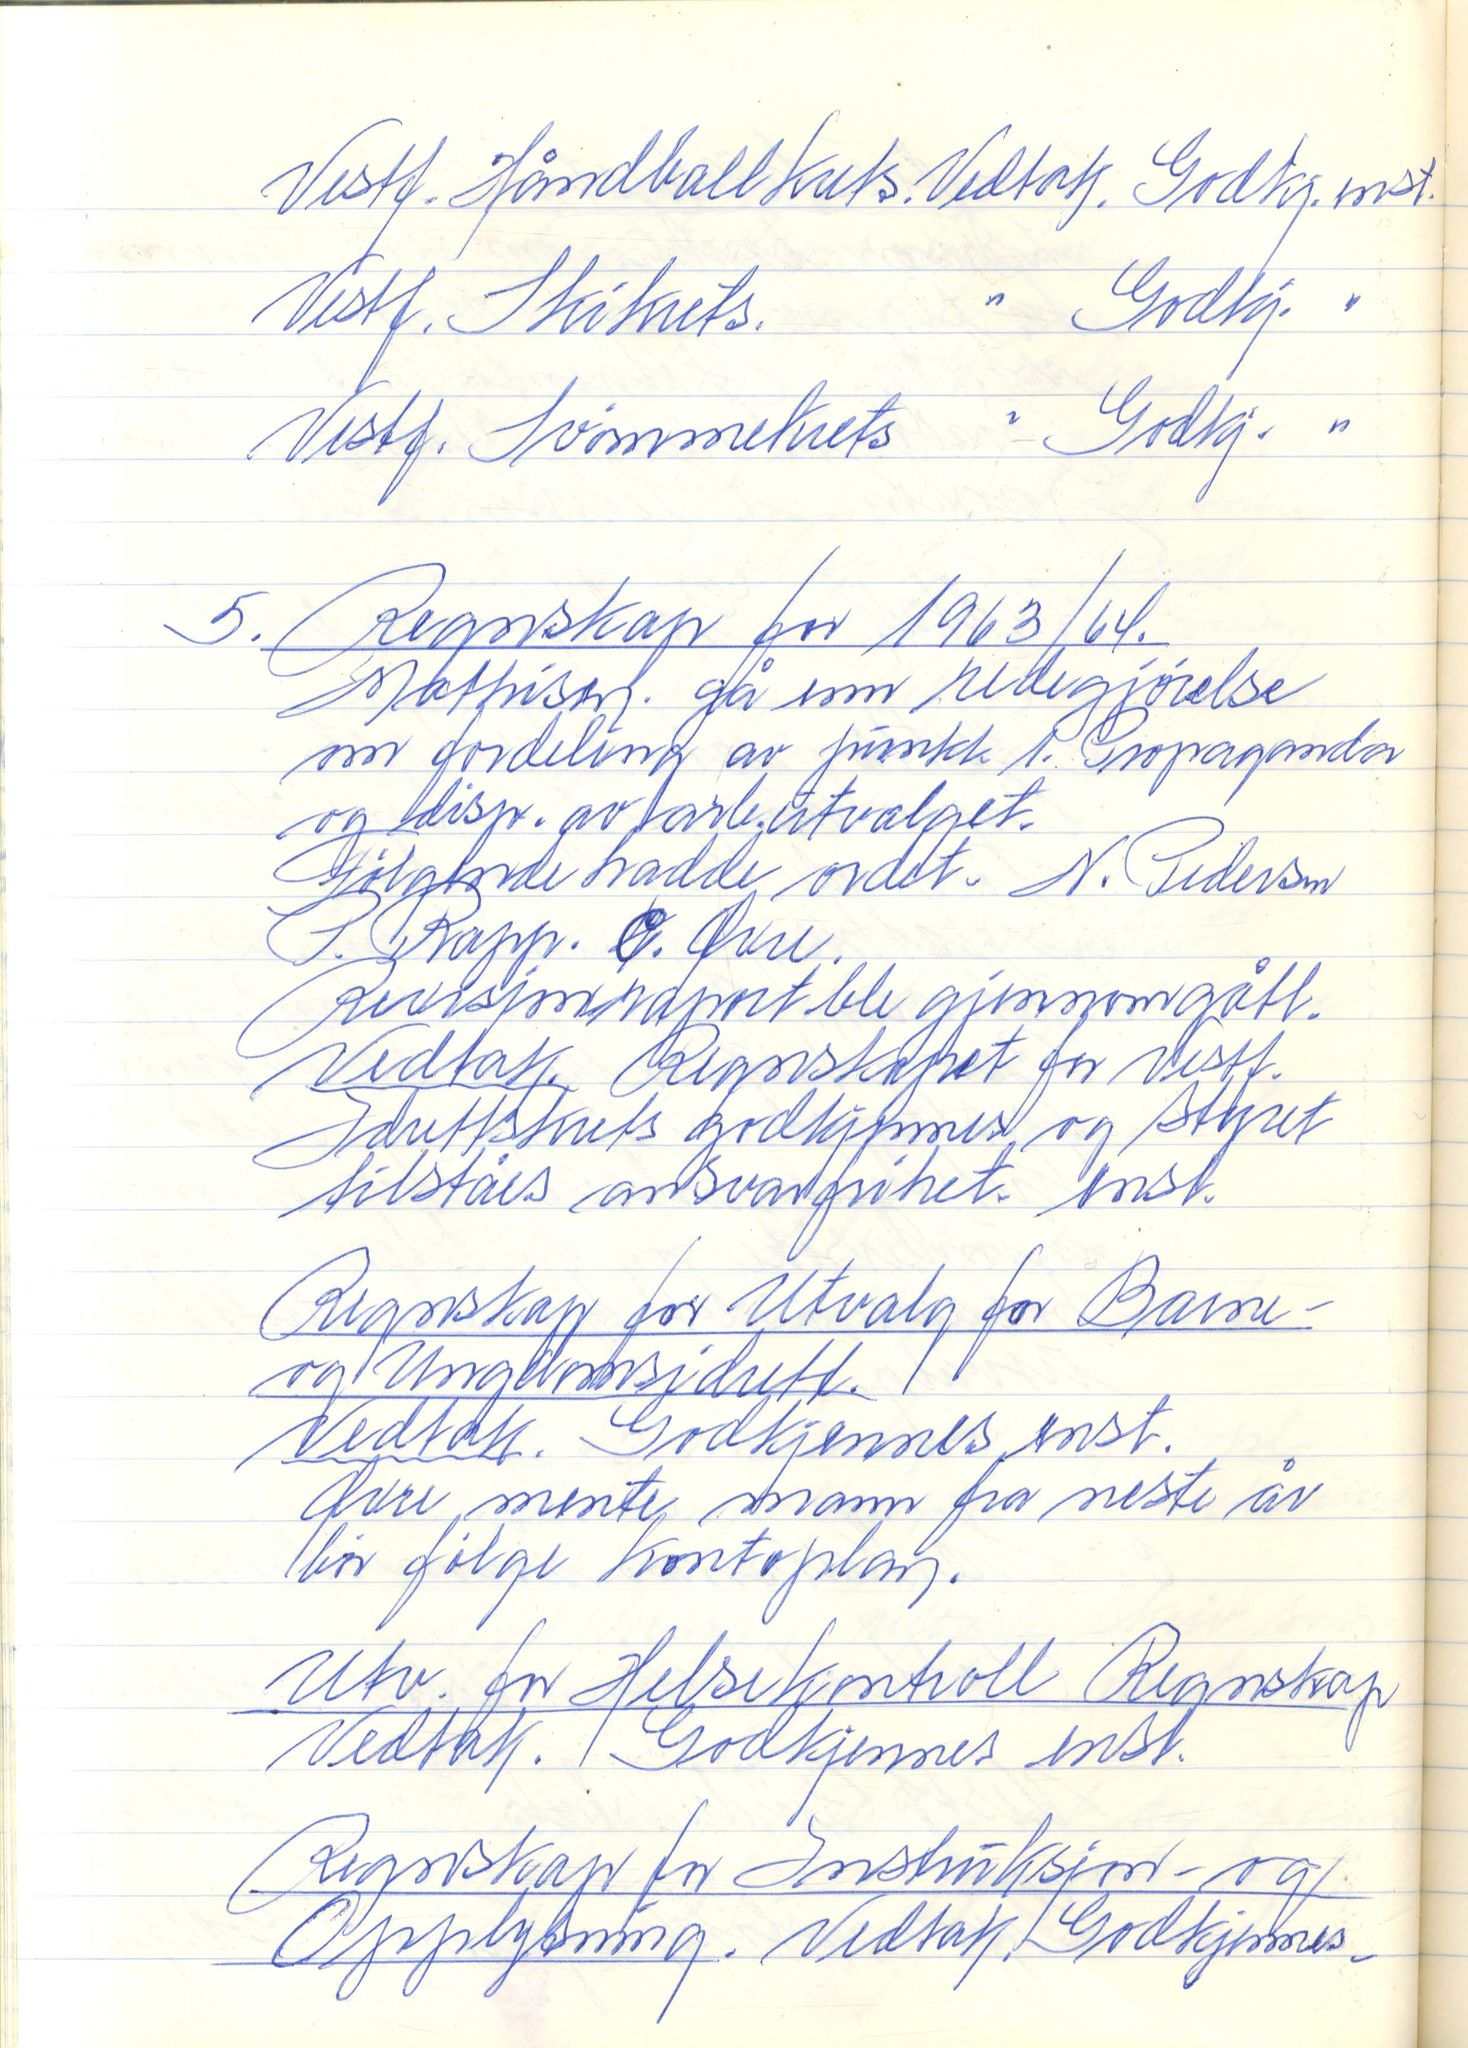 Vestf. Håndballkrets. Vedtak. Godkj. enst.
Vestf. Skikrets. " Godkj. "
Vestf. Svømmekrets " Godkj. "
5. Regnskap for 1963/64.
Mathisen. ga en redegjørelse
om fordeling av punkt 1. Propaganda
og disp. av arb.utvalget.
Følgende hadde ordet. N. Pedersen
S. Rapp. O. Øvre.
Revisjonsraport ble gjennomgått.
Vedtak. Regnskapet for Vestf.
Idrettskrets godkjennes og styret
tilståes ansvarfrihet. enst.
Regnskap for Utvalg for Barne-
og Ungdomsidrett.
Vedtak. Godkjennes enst.
Øvre mente mann fra neste år
bør følge kontoplan.
Utv. for Helsekontroll Regnskap
Vedtak. Godkjennes enst.
Regnskap for Instruksjon- og
Opplysning. Vedtak. Godkjennes-